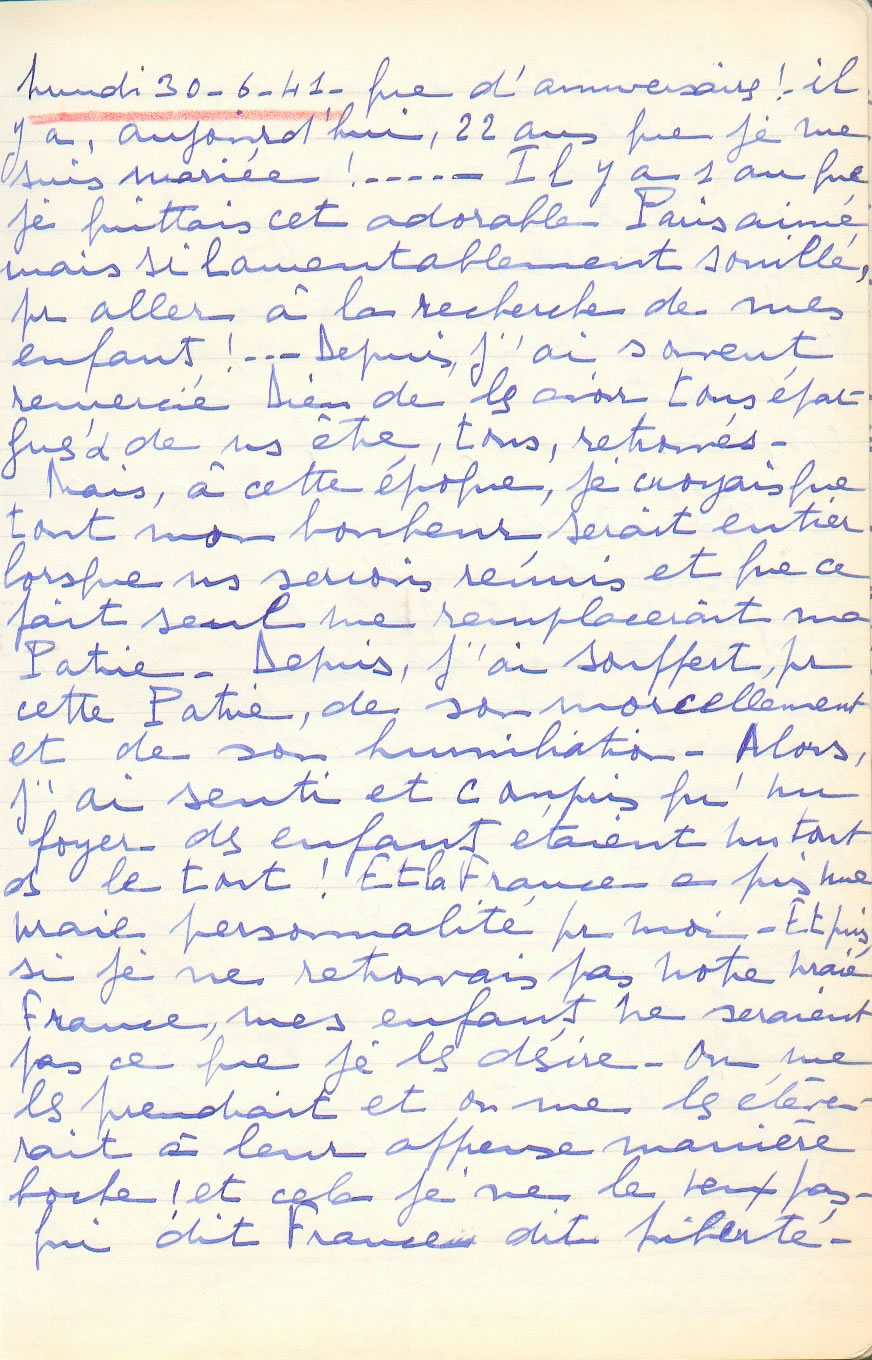 Lundi 30-6-41- que d'anniversaires! - il
y a, aujourd'hui, 22 ans que je me
suis mariée !----- Il y a 1 an que
je quittais cet adorable Paris aimé
mais si lamentablement souillé,
pr aller à la recherche de mes
enfants !--- Depuis, j'ai souvent
remercié Dieu de ls avoir tous épar-
gnés & de ns être, tous, retrouvés-
Mais, à cette époque, je croyais que
tout mon bonheur serait entier
lorsque ns serions réunis et que ce
fait seul me remplacerait ma
Patrie - Depuis, j'ai souffert, pr
cette Patrie, de son morcellement
et de son humiliation - Alors,
j'ai senti et compris qu'un
foyer ds enfants étaient un tout
ds le tout ! Et la France a pris une
vraie personnalité pr moi - Et puis,
si je ne retrouvais pas notre vraie
France, mes enfants ne seraient
pas ce que je ls désire - On me
ls prendrait et on me ls élève-
rait à leur affreuse manière
boche ! et cela je ne le veux pas-
qui dit France dit Liberté -